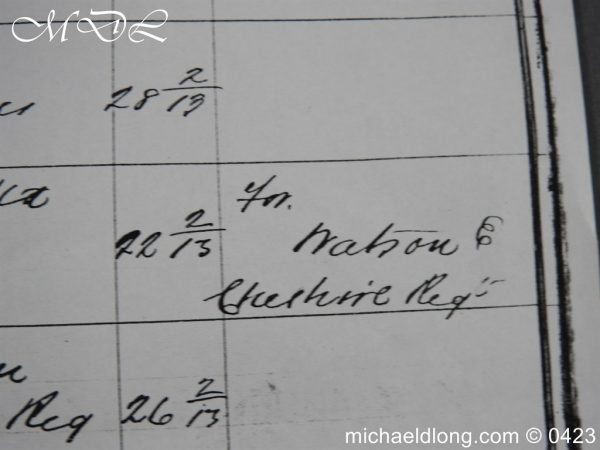 MDL
28 2/13
22 2/13 For.
Watson E
Cheshire Regt
Reg 26 2/13
michaeldlong.com © 0423